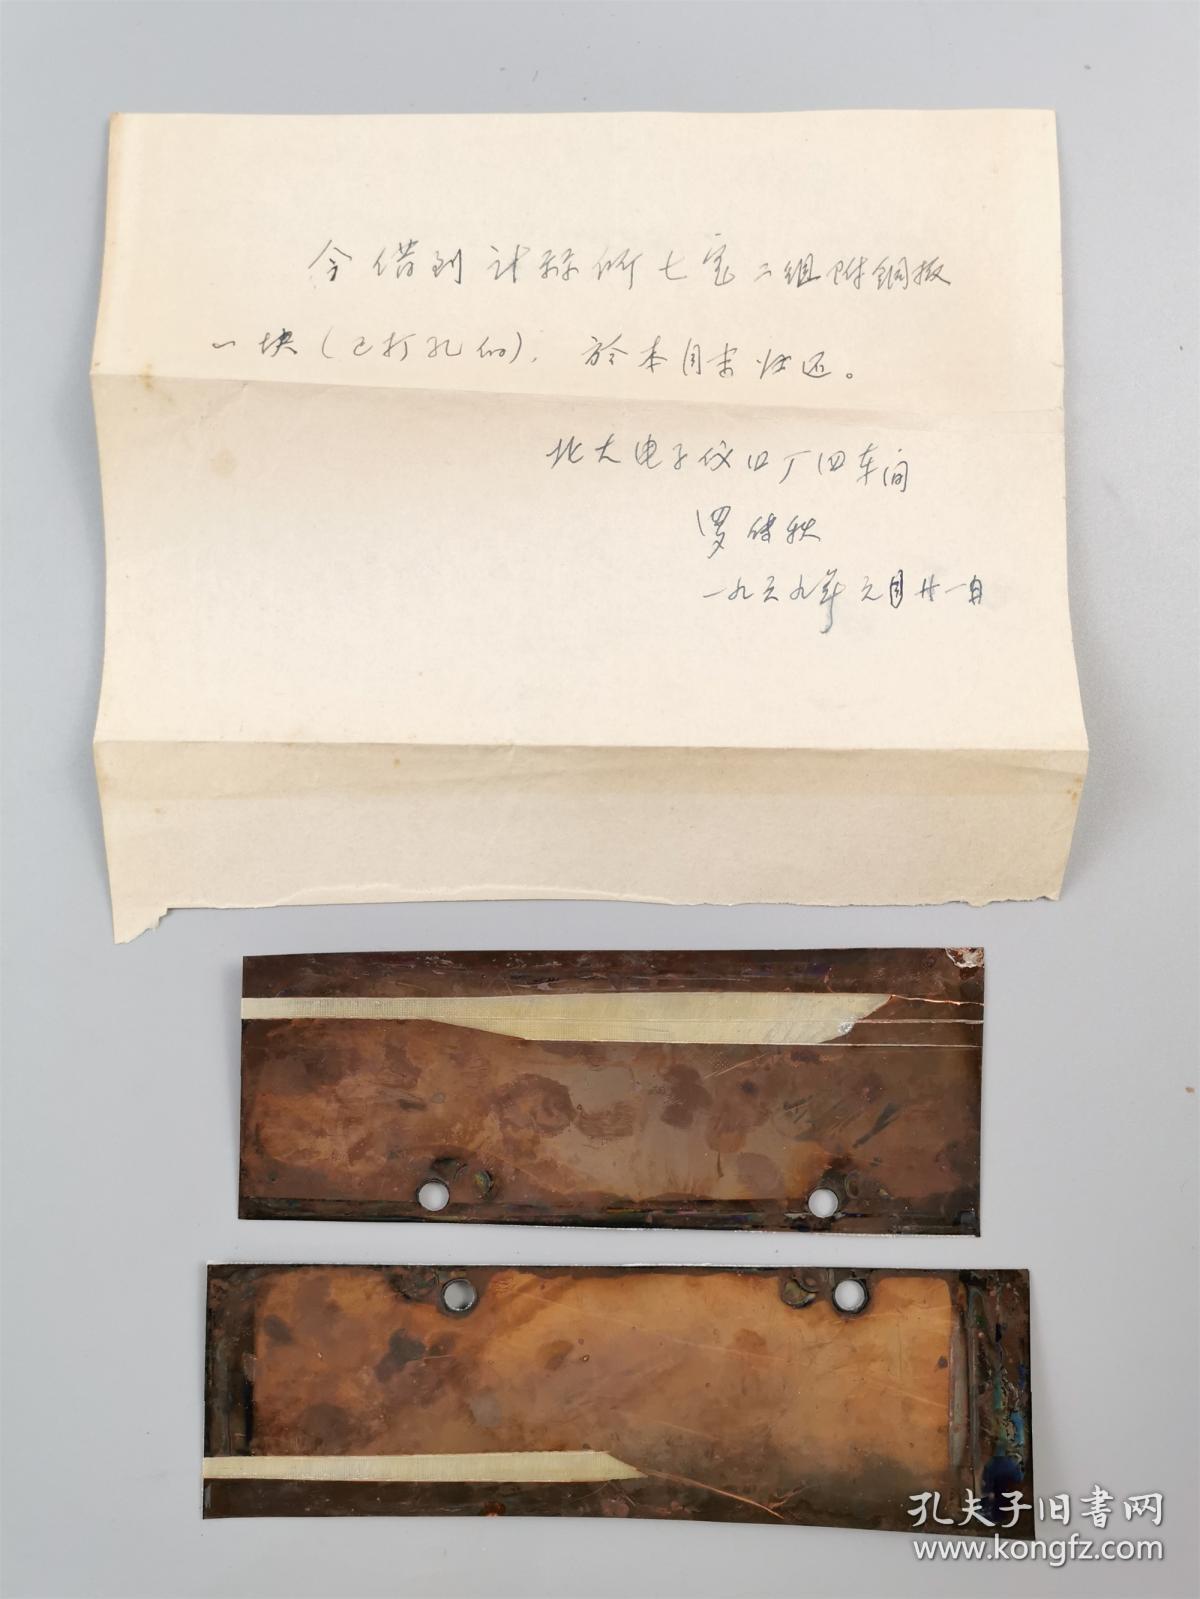 今借到计祘所七室二组附铜板
一块(已打孔的),於本月末归还。
北大电子仪口厂四车间
罗
一九六九年元月廿一日
孔夫子旧书网
www.kongfz.com